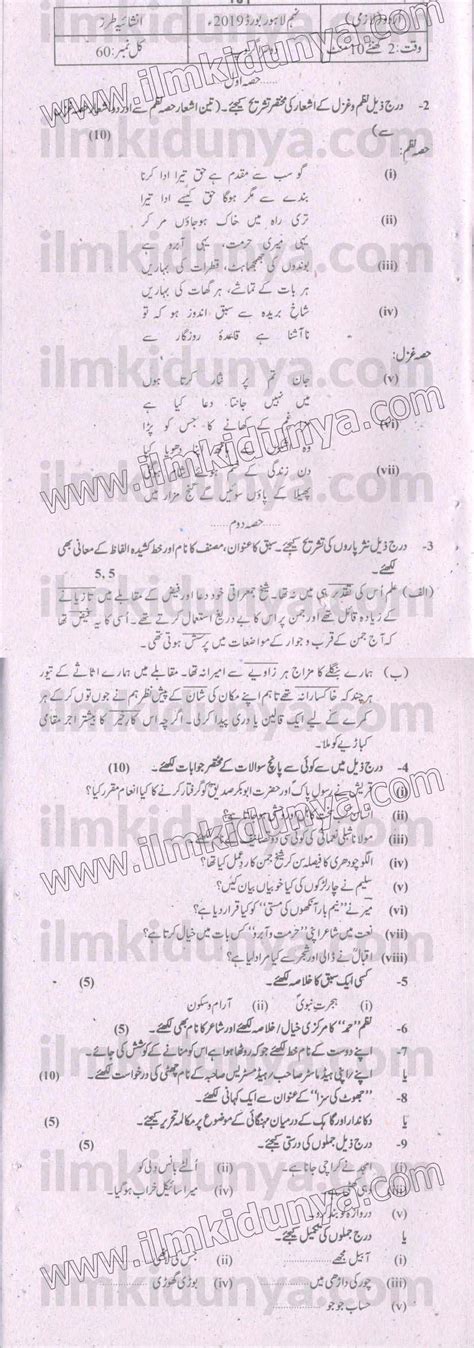 اردو (لازمی) نہم لاہور بورڈ 2019ء انشائیہ طرز
وقت: 2 گھنٹے 10 منٹ کل نمبر: 60
حصہ اول
2- درج ذیل نظم و غزل کے اشعار کی مختصر تشریح کیجئے۔ (تین اشعار حصہ نظم سے اور دو اشعار حصہ غزل سے) (10)
حصہ نظم:
(i) گو سب سے مقدم ہے حق تیرا ادا کرنا
بندے سے مگر ہوگا حق کیسے ادا تیرا
(ii) تری راہ میں خاک ہوجاؤں مر کر
یہی میری حرمت، یہی آبرو ہے
(iii) بوندوں کی جھمجھاہٹ، قطرات کی بہاریں
ہر بات کے تماشے، ہر گھات کی بہاریں
(iv) شاخ بریدہ سے سبق اندوز ہو کہ تو
ناآشنا ہے قاعدۂ روزگار سے
حصہ غزل:
(v) جان تم پر نثار کرتا ہوں
میں نہیں جانتا دعا کیا ہے
(vi) غم کے کھانے کا، جس کو پڑا
وہ
(vii) دن زندگی کے
پھیلا کے پاؤں سوئیں گے کنج مزار میں
حصہ دوم
3- درج ذیل نثر پاروں کی تشریح کیجئے۔ سبق کا عنوان، مصنف کا نام اور خط کشیدہ الفاظ کے معانی بھی لکھئے۔ 5,5
(الف) علم اُس کی تقدیر ہی میں نہ تھا۔ شیخ جمعراتی خود دعا اور فیض کے مقابلے میں تازیانے کے زیادہ قائل تھے اور جمن پر اس کا بے دریغ استعمال کرتے تھے۔ اُسی کا یہ فیض تھا کہ آج جمن کے قرب و جوار کے مواضعات میں پرسش ہوتی تھی۔
(ب) ہمارے بنگلے کا مزاج ہر زاویے سے امیرانہ تھا۔ مقابلے میں ہمارے اثاثے کے تیور ہر چند کہ خاکسارانہ تھے تاہم اپنے مکان کی شان کے پیش نظر ہم نے جوں توں کر کے ہر کمرے کے لیے ایک قالین یا دری پیدا کر لی۔ اگرچہ اس کار خیر کا بیشتر اجر مقامی کباڑیے کو ملا۔
4- درج ذیل میں سے کوئی سے پانچ سوالات کے مختصر جوابات لکھئے۔ (10)
(i) قریش نے رسول پاکؐ اور حضرت ابوبکر صدیقؓ کو گرفتار کرنے کا کیا انعام مقرر کیا؟
(ii) انسان
(iii) مولانا شبلی نعمانی کی کوئی سی دو تصانیف
(iv) الگو چودھری کا فیصلہ سن کر شیخ جمن کا رد عمل کیا تھا؟
(v) سلیم نے چار لڑکوں کی کیا خوبیاں بیان کیں؟
(vi) میر نے "نیم باز آنکھوں کی مستی" کو کیا قرار دیا ہے؟
(vii) نعت میں شاعر اپنی "حرمت و آبرو" کس بات میں خیال کرتا ہے؟
(viii) اقبال نے ڈالی اور شجر سے کیا مراد لیا ہے؟
5- کسی ایک سبق کا خلاصہ لکھئے۔ (5)
(i) ہجرت نبویؐ (ii) آرام و سکون
6- نظم "حمد" کا مرکزی خیال / خلاصہ لکھئے اور شاعر کا نام بھی لکھئے۔ (5)
7- اپنے دوست کے نام خط لکھئے جو کہ روٹھا ہوا ہے اس کو منانے کے کوشش کی جائے۔
یا اپنے / اپنی ہیڈ ماسٹر صاحب / ہیڈ مسٹریس صاحبہ کے نام چھٹی کی درخواست لکھئے۔ (10)
8- "جھوٹ کی سزا" کے عنوان سے ایک کہانی لکھئے۔
یا دکاندار اور گاہک کے درمیان مہنگائی کے موضوع پر مکالمہ تحریر کیجئے۔ (5)
9- درج ذیل جملوں کی درستی کیجئے۔ (5)
(i) امجد نے کراچی جانا ہے۔ (ii) اُلٹے بانس دلی کو
(iv) میرا سائیکل خراب ہوگیا۔
(v) دروازہ
یا درج جملوں کی تکمیل کیجئے۔
(i) آ بیل مجھے (ii) جس کی لاٹھی
(iii) چور کی داڑھی میں (iv) بوڑھی گھوڑی
(v) حساب جو جو
www.ilmkidunya.com
ilmkidunya.com